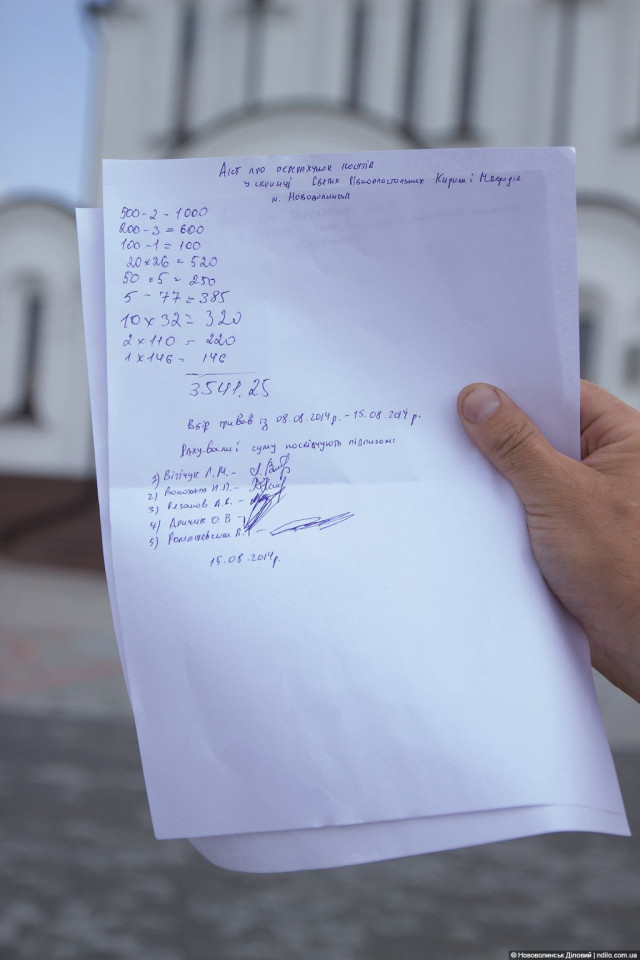 Акт про перерахунок коштів
у скриньці Святих Рівноапостольних Кирила і Мефодія
м. Нововолинськ
500 - 2 - 1000
200 - 3 = 600
100 - 1 = 100
20 x 26 = 520
50 x 5 = 250
5 - 77 = 385
10 x 32 = 320
2 x 110 = 220
1 x 146 = 146
3541.25
Збір тривав із 08.08.2014р. - 15.08.2014р.
Рахували і суму посвідчують підписом:
1) Вітічук Л.М. -
2) Волохат Н.П. -
3) А.В. -
4) О.В -
5) В.
15.08.2014р.
© Нововолинськ Діловий | ndilo.com.ua